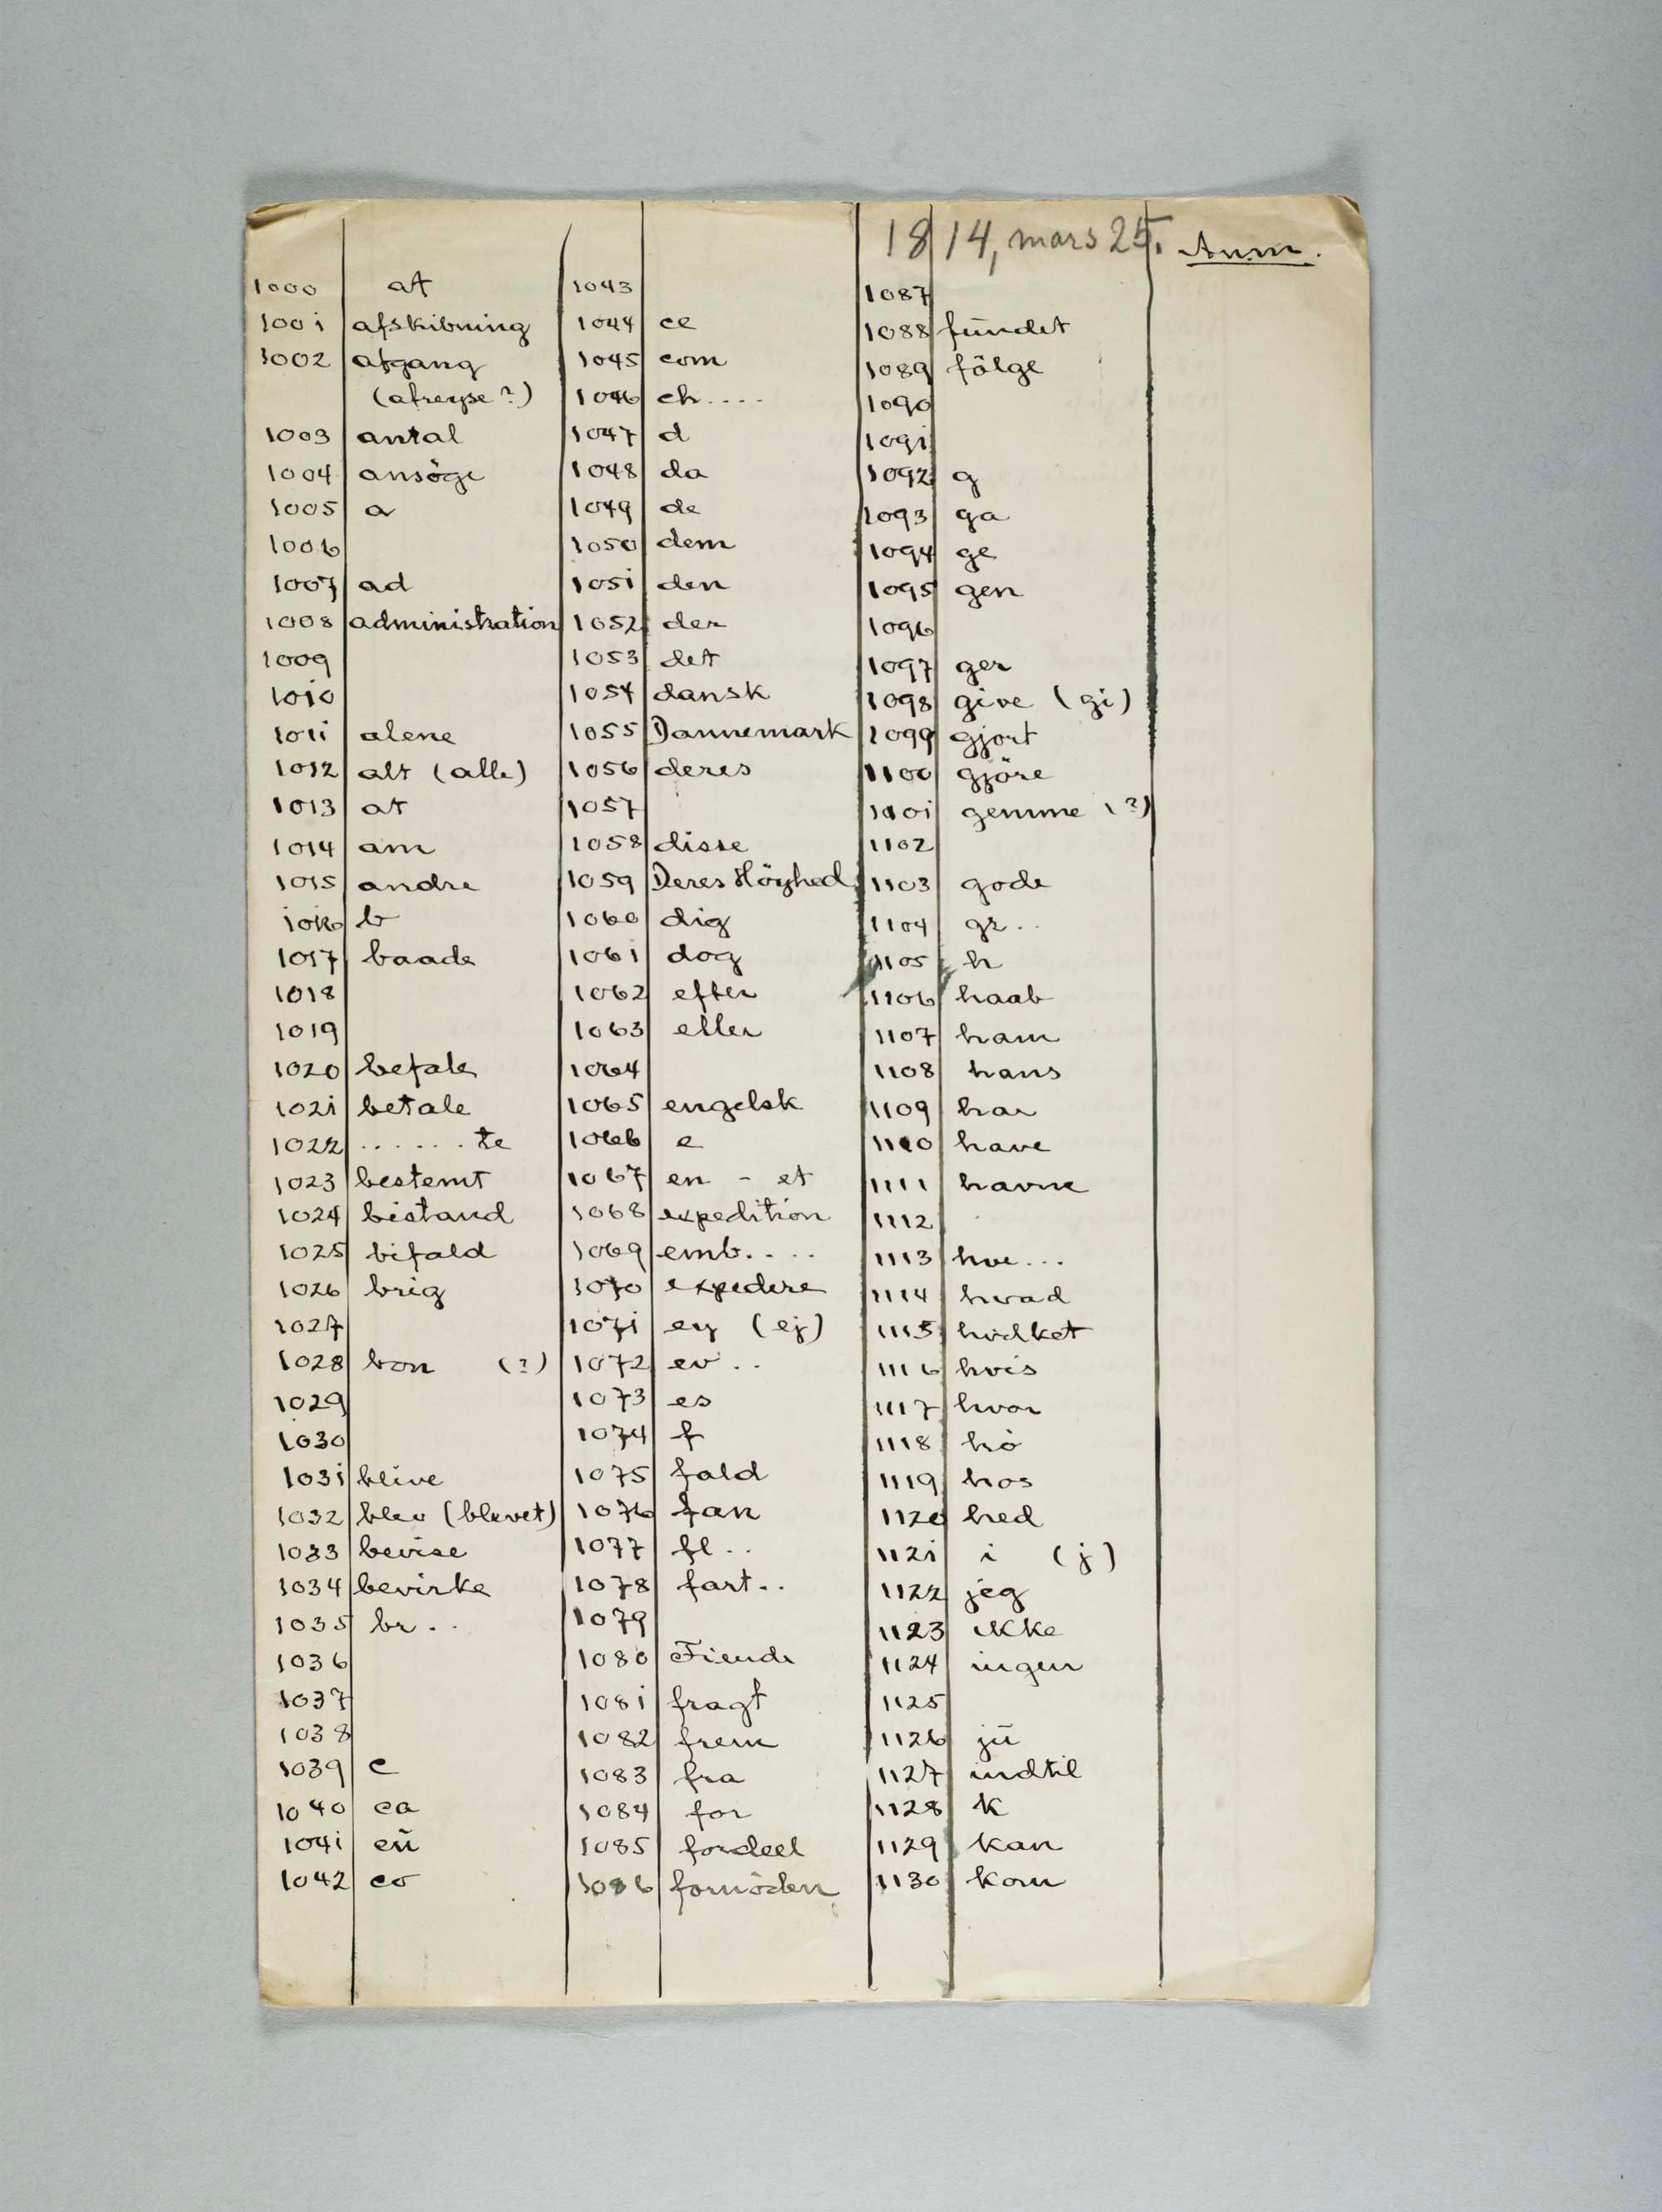 1814, mars 25. Anm.
1000 at
1001 afskibning
1002 afgang
(afreyse?)
1003 antal
1004 ansöge
1005 a
1006
1007 ad
1008 administration
1009
1010
1011 alene
1012 alt (alle)
1013 at
1014 am
1015 andre
1016 b
1017 baade
1018
1019
1020 befale
1021 betale
1022 ...... te
1023 bestemt
1024 bistand
1025 bifald
1026 brig
1027
1028 bon (?)
1029
1030
1031 blive
1032 blev (blevet)
1033 bevise
1034 bevirke
1035 br..
1036
1037
1038
1039 c
1040 ca
1041 cŭ
1042 co
1043
1044 ce
1045 com
1046 ch....
1047 d
1048 da
1049 de
1050 dem
1051 den
1052 der
1053 det
1054 dansk
1055 Dannemark
1056 deres
1057
1058 disse
1059 Deres Höyhed
1060 dig
1061 dog
1062 efter
1063 eller
1064
1065 engelsk
1066 e
1067 en - et
1068 expedition
1069 emb....
1070 expedere
1071 ey (ej)
1072 ev..
1073 es
1074 f
1075 fald
1076 fan
1077 fl..
1078 fart..
1079
1080 Fiende
1081 fragt
1082 frem
1083 fra
1084 for
1085 fordeel
1086 fornöden
1087
1088 fŭndet
1089 fölge
1090
1091
1092 g
1093 ga
1094 ge
1095 gen
1096
1097 ger
1098 give (gi)
1099 gjort
1100 gjöre
1101 gemme (?)
1102
1103 gode
1104 gr..
1105 h
1106 haab
1107 ham
1108 hans
1109 har
1110 have
1111 havne
1112
1113 hve...
1114 hvad
1115 hvilket
1116 hvis
1117 hvor
1118 hö
1119 hos
1120 hed
1121 i (j)
1122 jeg
1123 ikke
1124 ingen
1125
1126 jŭ
1127 indtil
1128 k
1129 kan
1130 kom